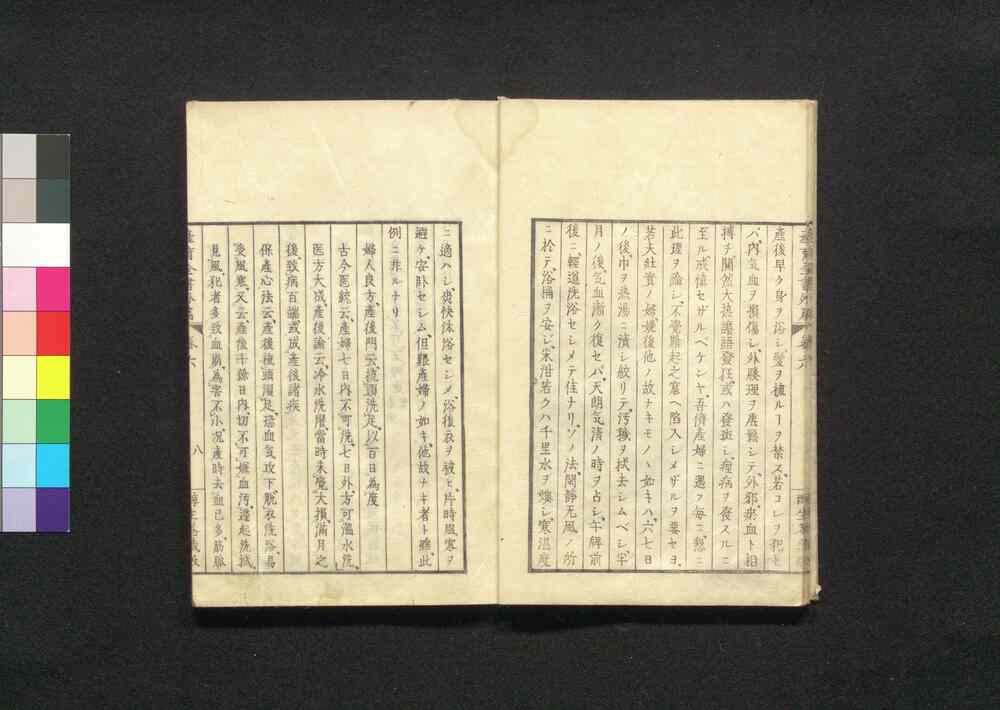 産後早ク身ヲ浴シ髪ヲ梳ルーヲ禁ス若コレヲ犯セ
バ内気血ヲ損傷シ外腠理ヲ虚鬆シテ外邪瘀血ト相
搏チ閧然大熱譫語発狂或ハ発斑シ瘂病ヲ発スルニ
至ル戒慎セザルベケンヤ吾儕産婦ニ遇フ毎ニ懇ニ
此理ヲ論シ不覚難起之塞ヘ陥入シメザルヲ要セヨ
若夫壮実ノ婦娩後他ノ故ナキモノヽ如キハ六七日
ノ後巾ヲ熱湯ニ漬シ絞リテ汚穢ヲ拭去シムベシ半
月ノ後気血漸ク復セバ天朗気清ノ時ヲ占シ午牌前
後ニ軽遥洗浴セシメテ佳ナリソノ法閑静无風ノ所
ニ於テ浴桶ヲ安ジ米泔若クハ千里水ヲ燠シ寒温度
ニ適ハシ爽快沐浴セシメ浴後衣ヲ被ヒ片時風寒ヲ
避ケ安卧セシム但艱産婦ノ如キ他故ナキ者ト雖此
例ニ非ルナリ
婦人良方産後門云梳頭洗足以百日為度
古今医統云産婦七日内不可洗七日外方可温水洗
医方大成産後論云冷水洗濯当時未覚大損満月之
後致病百端或成産後諸疾
保産心法云産後梳頭濯足恐血気攻下脱衣洗浴易
受風寒又云産後十余日内切不可嫌血汚遽起洗拭
見風犯者多致血崩為害不小况産時去血已多筋脈
六
八